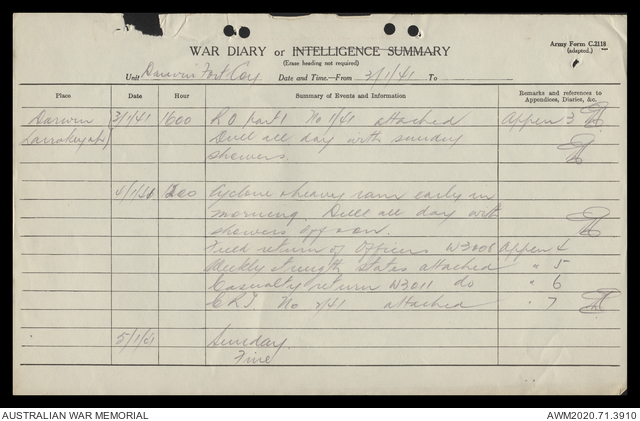 Army Form C.2118
(adapted.)
WAR DIARY or INTELLIGENCE SUMMARY
(Erase heading not required)
Unit Darwin Fort Coy Date and Time—From 3/1/41 To
Place Date Hour Summary of Events and Information Remarks and references to Appendices, Diaries, &c.
Darwin 3/1/41 1600 R.O. part 1 No 1/41 attached Appen 3
Larrakeyah Dull all day with
showers.
4/1/41 Cyclone & heavy rain early in
morning. Dull all day with
showers off & on.
Field return of Officers W3008 Appen 4
Weekly strength states attached " 5
Casualty return W3011 do " 6
No 2/41 attached " 7
5/1/41 Sunday.
Fine
AUSTRALIAN WAR MEMORIAL AWM2020.71.3910